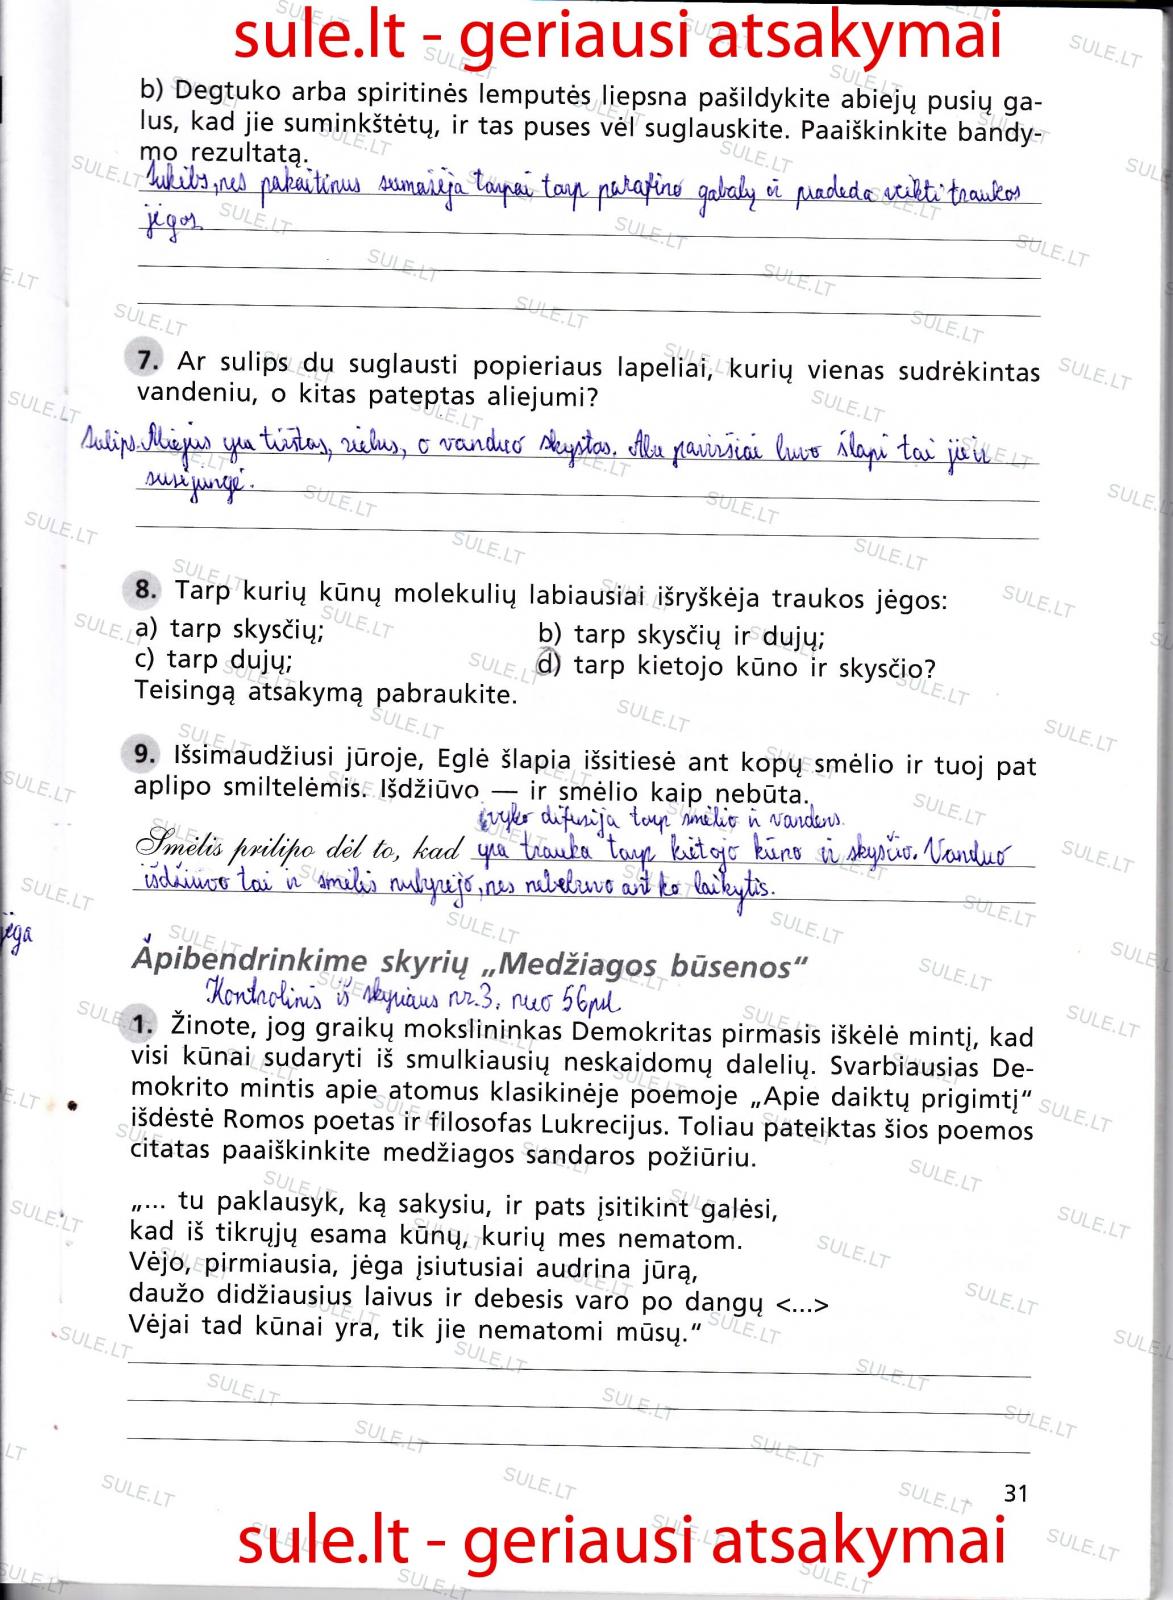 sule.lt - geriausi atsakymai
b) Degtuko arba spiritinės lemputės liepsna pašildykite abiejų pusių ga-
lus, kad jie suminkštėtų, ir tas puses vėl suglauskite. Paaiškinkite bandy-
mo rezultatą.
Sukibs, nes pakaitinus sumažėja tarpai tarp parafino gabalų ir pradeda veikti traukos
jėgos
7. Ar sulips du suglausti popieriaus lapeliai, kurių vienas sudrėkintas
vandeniu, o kitas pateptas aliejumi?
Sulips. Aliejus yra tirštas, riebus, o vanduo skystas. Abu paviršiai buvo šlapi tai jie ir
susijungė.
8. Tarp kurių kūnų molekulių labiausiai išryškėja traukos jėgos:
a) tarp skysčių; b) tarp skysčių ir dujų;
c) tarp dujų; d) tarp kietojo kūno ir skysčio?
Teisingą atsakymą pabraukite.
9. Išsimaudžiusi jūroje, Eglė šlapia išsitiesė ant kopų smėlio ir tuoj pat
aplipo smiltelėmis. Išdžiūvo — ir smėlio kaip nebūta.
įvyko difuzija tarp smėlio ir vandens.
Smėlis prilipo dėl to, kad yra trauka tarp kietojo kūno ir skysčio. Vanduo
išdžiuvo tai ir smėlis nubyrėjo, nes nebebuvo ant ko laikytis.
jėga
Apibendrinkime skyrių „Medžiagos būsenos“
Kontrolinis iš skyriaus nr.3. nuo 56psl
1. Žinote, jog graikų mokslininkas Demokritas pirmasis iškėlė mintį, kad
visi kūnai sudaryti iš smulkiausių neskaidomų dalelių. Svarbiausias De-
mokrito mintis apie atomus klasikinėje poemoje „Apie daiktų prigimtį“
išdėstė Romos poetas ir filosofas Lukrecijus. Toliau pateiktas šios poemos
citatas paaiškinkite medžiagos sandaros požiūriu.
„... tu paklausyk, ką sakysiu, ir pats įsitikint galėsi,
kad iš tikrųjų esama kūnų, kurių mes nematom.
Vėjo, pirmiausia, jėga įsiutusiai audrina jūrą,
daužo didžiausius laivus ir debesis varo po dangų <...>
Vėjai tad kūnai yra, tik jie nematomi mūsų.“
31
sule.lt - geriausi atsakymai